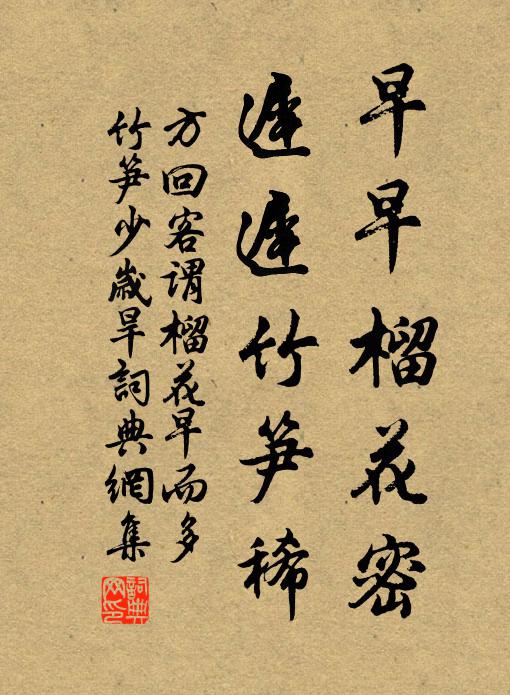 早早榴花密
遲遲竹笋稀
方回客謂榴花早而多
竹笋少歲旱詞典網集
詞典網印